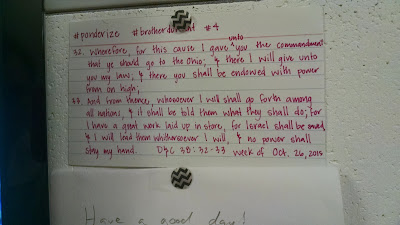 #ponderize #brotherdurrant #4
unto
32. Wherefore, for this cause I gave you the commandment
that ye should go to the Ohio; & there I will give unto
you my law; & there you shall be endowed with power
from on high;
33. And from thence, whosoever I will shall go forth among
all nations, & it shall be told them what they shall do; for
I have a great work laid up in store, for Israel shall be saved,
& I will lead them whithersoever I will, & no power shall
stay my hand. D&C 38:32-33 week of Oct. 26, 2015
Have a good day!